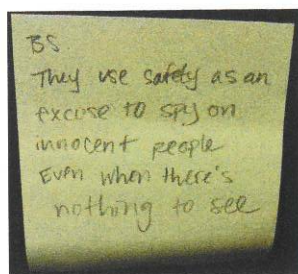 BS
They use safety as an
excuse to spy on
innocent people
Even when there's
nothing to see